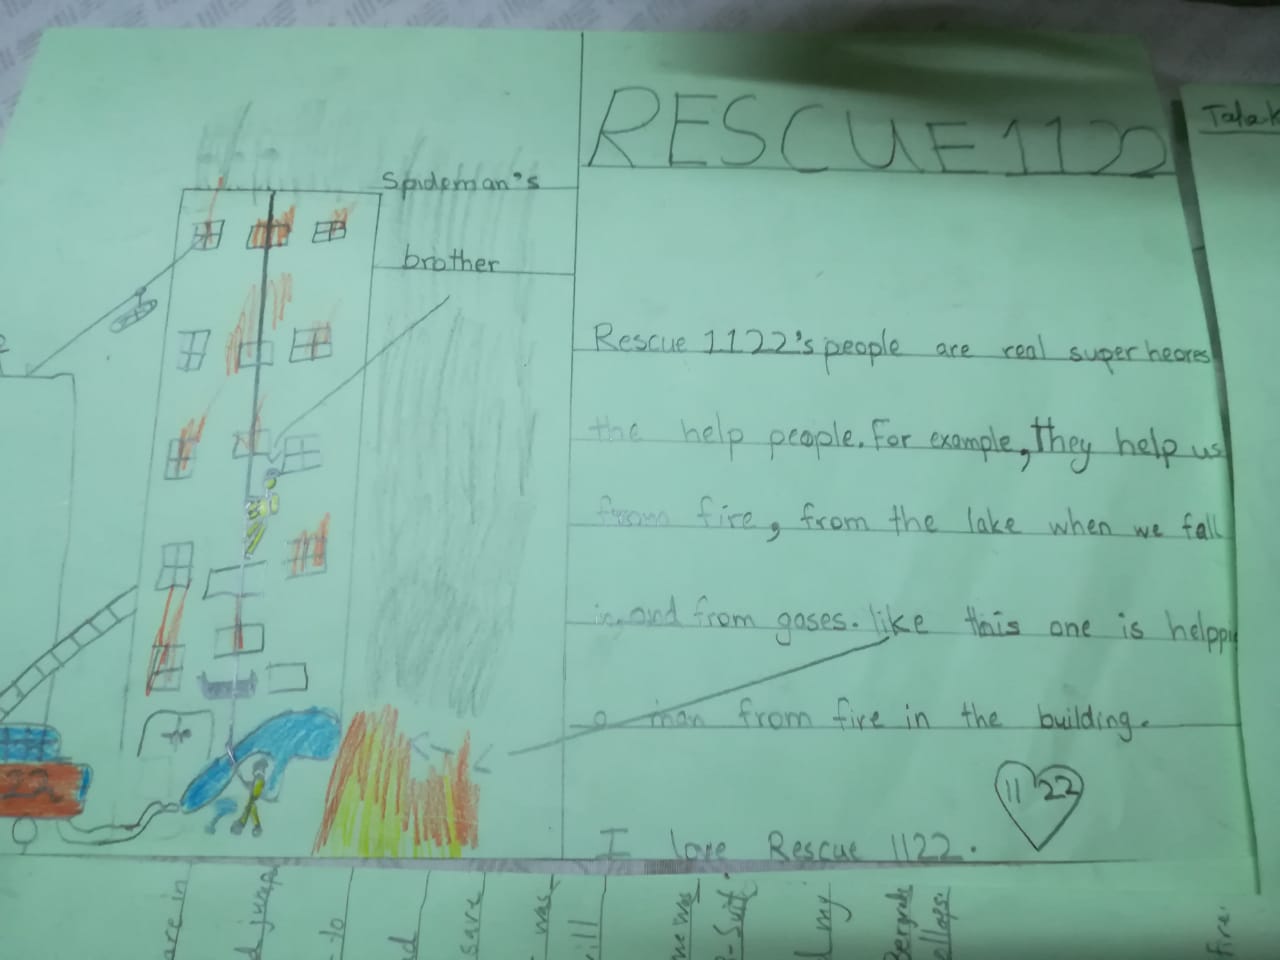 RESCUE 1122
Spideman's
brother
Rescue 1122's people are real super heores
the help people. For example, they help us
from fire, from the lake when we fall
in, and from gases. like this one is helppi
a man from fire in the building.
11 22
I love Rescue 1122.
22
are in
d jump
to
d
save
was
ill
me was
- Suit.
d my
ellaps.
fire.